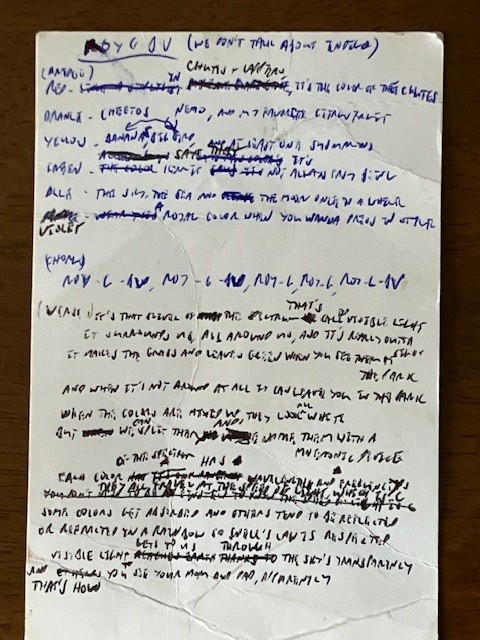 ROY G BIV (WE DON'T TALK ABOUT INDIGO)
IN CHUTES + LADDERS
RED - IT'S THE COLOR OF THE CHUTES
ORANGE - CHEETOS NEMO, AND MY FAVORITE CITRUS FRUIT
YELLOW - BANANAS, BIG BIRD, AND AT LEAST ONE
SAYS THEY
GREEN - IT'S NOT ALWAYS EASY BEING
BLUE - THE SKY, THE SEA AND THE MOON ONCE IN A WHILE
A ROYAL COLOR WHEN YOU WANNA DRESS IN STYLE
VIOLET
(CHORUS)
ROY - G - BIV, ROY - G - BIV, ROY-G, ROY-G, ROY-G-BIV
THAT'S
(VERSE) IT'S THAT OF THE SPECTRUM CALLED VISIBLE LIGHT
IT SURROUNDS US, ALL AROUND US, AND IT'S REALLY QUITE
IT MAKES THE GRASS AND LEAVES GREEN WHEN YOU SEE THEM AT
THE PARK
AND WHEN IT'S NOT AROUND AT ALL IT CAN LEAVE YOU IN THE DARK
WHEN THE COLORS ARE MIXED UP, THEY ALL LOOK WHITE
CAN AND
BUT WE SPLIT THEM NAME THEM WITH A
MNEMONIC DEVICE
OF THE SPECTRUM HAS A
EACH COLOR WAVELENGTH AND FREQUENCY
SOME COLORS GET ABSORBED AND OTHERS TEND TO BE REFLECTED
OR REFRACTED IN A RAINBOW SO SNELL'S LAW IS RESPECTED
GETS TO US THROUGH
VISIBLE LIGHT THE SKY'S TRANSPARENCY
AND YOU SEE YOUR MOM AND DAD, APPARENTLY
THAT'S HOW